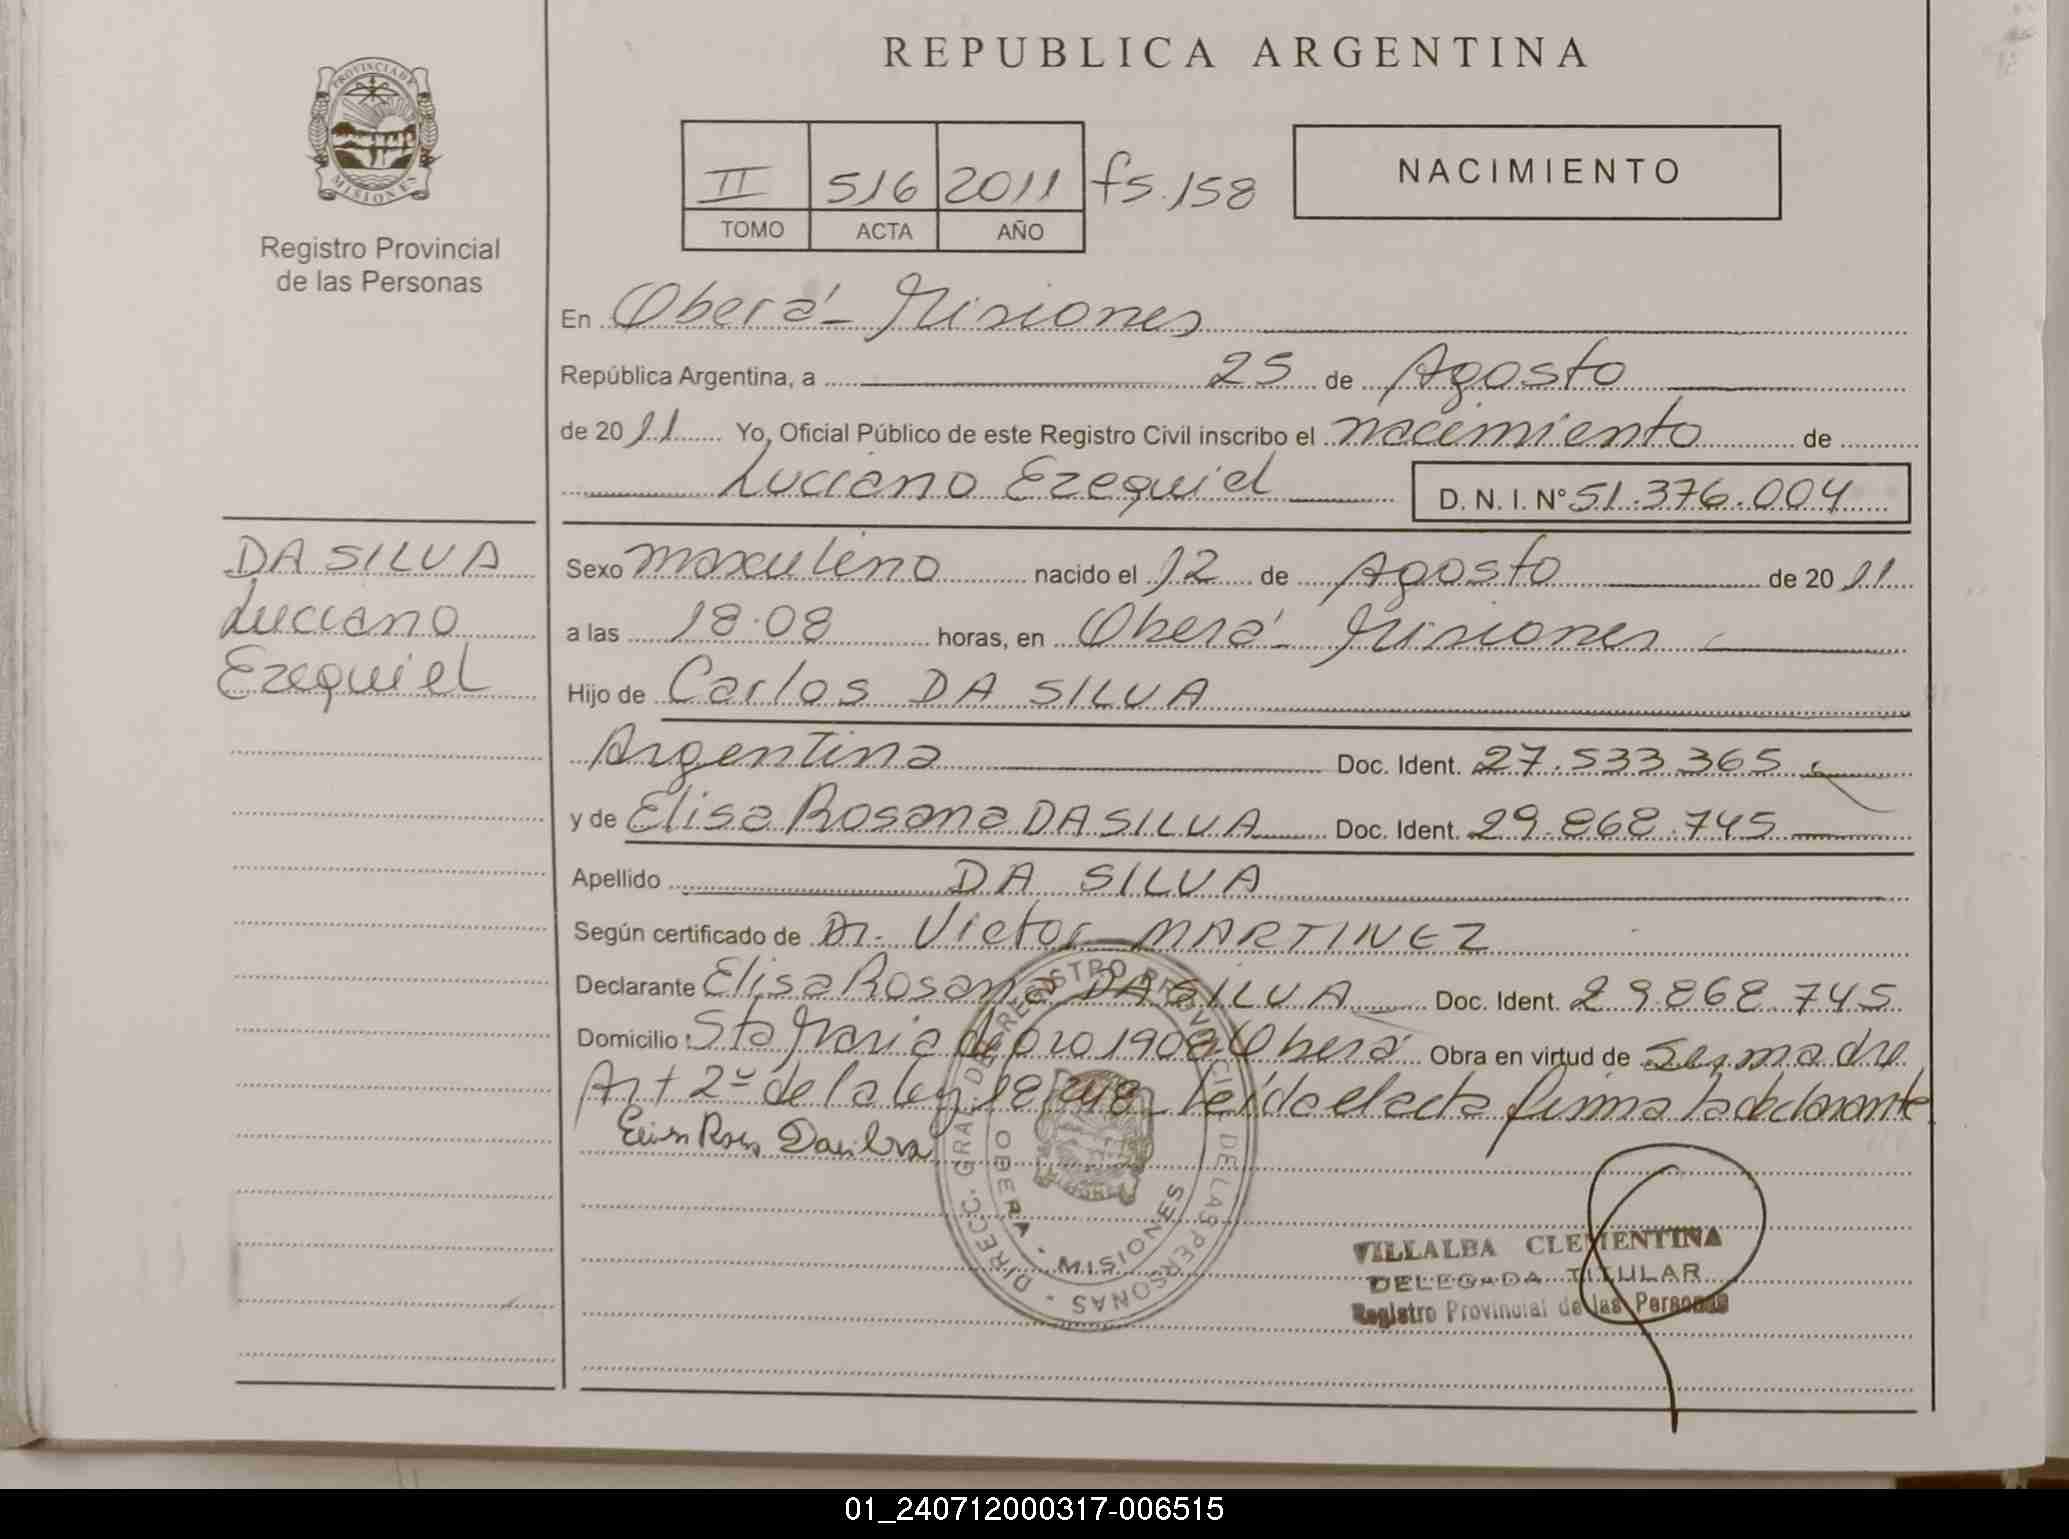 REPUBLICA ARGENTINA
PROVINCIA DE MISIONES
Registro Provincial
de las Personas
II 516 2011 fs.158
TOMO ACTA AÑO
NACIMIENTO
En Oberá - Misiones
República Argentina, a 25 de Agosto
de 2011 Yo, Oficial Público de este Registro Civil inscribo el nacimiento de
Luciano Ezequiel D. N. I. N° 51.376.004
DA SILVA
Luciano
Ezequiel
Sexo masculino nacido el 12 de Agosto de 2011
a las 18.08 horas, en Oberá - Misiones
Hijo de Carlos DA SILVA
Argentina Doc. Ident. 27.533.365
y de Elisa Rosana DA SILVA Doc. Ident. 29.868.745
Apellido DA SILVA
Según certificado de Dr. Victor MARTINEZ
Declarante Elisa Rosana DA SILVA Doc. Ident. 29.868.745
Domicilio: Sta Maria de oro 1908 Oberá Obra en virtud de ser madre
Art 2º de la ley 18.248 - Leída el acta firma la declarante
DIRECC. GRAL DE REGISTRO PROVINCIAL DE LAS PERSONAS
OBERA - MISIONES
VILLALBA CLEMENTINA
DELEGADA TITULAR
Registro Provincial de las Personas
01_240712000317-006515